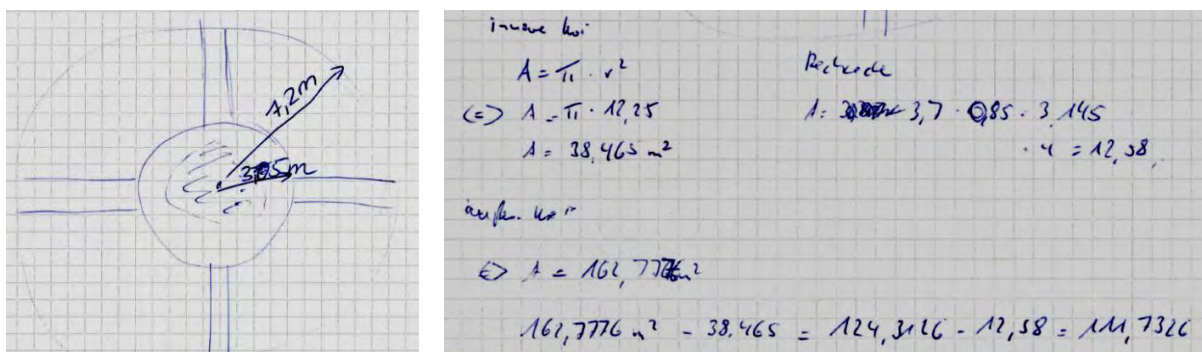 7,2m
3,5m
innere Kreis
A = π · r²
<=> A = π · 12,25
A = 38,465 m²
Rechtecke
A = 3,7 · 0,85 = 3,145
· 4 = 12,58
<=> A = 162,7776 m²
162,7776 m² - 38,465 = 124,3126 - 12,58 = 111,7326